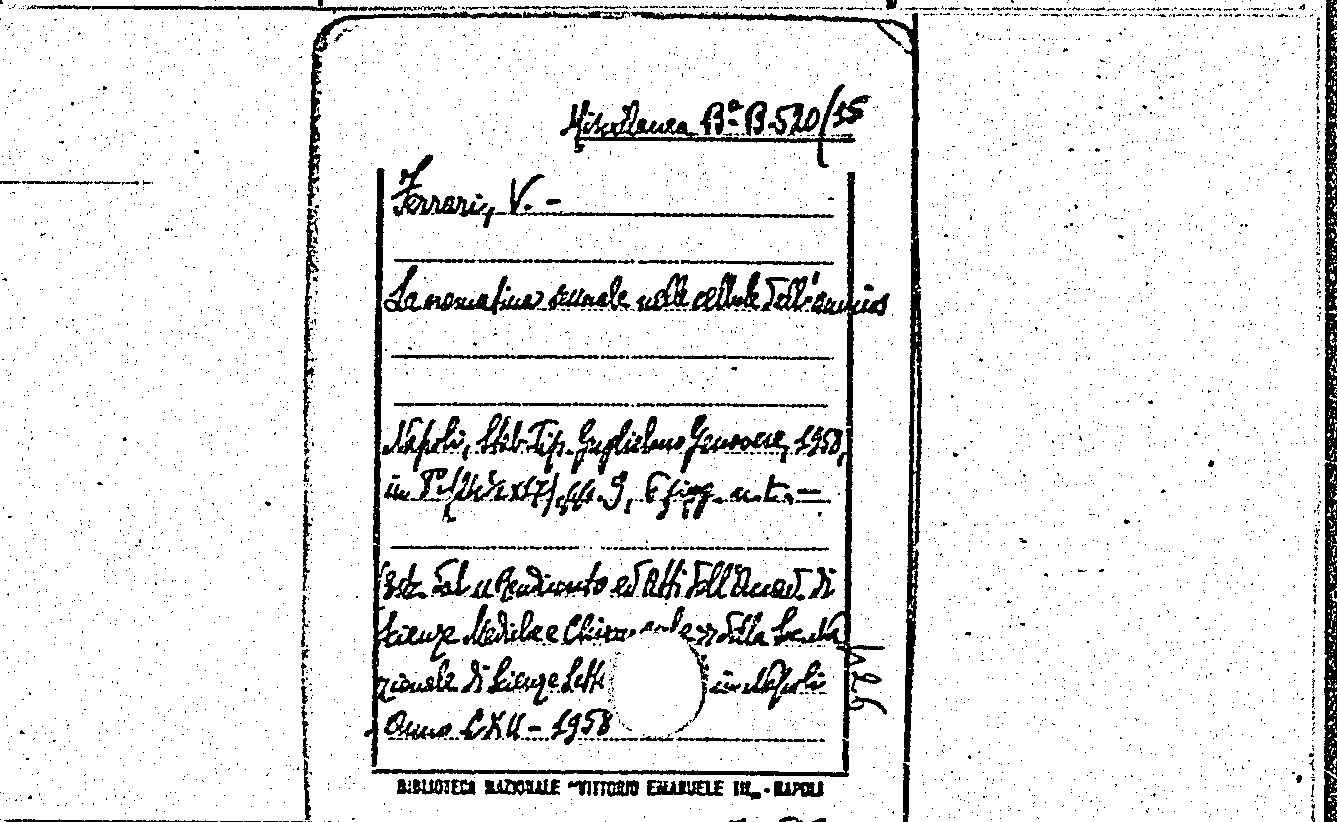 Miscellanea Bª B.520/15
Ferrari, V. -
La cromatina sessuale nelle cellule dell'amnios
Napoli, Stab. Tip. Guglielmo Genovese, 1958,
in 8º (24½x17), pp. 9, 6 figg. n. t. -
(Estr. dal "Rendiconto ed Atti dell'Accad. di
Scienze Mediche e Chirur della Società
zionale di Scienze Lett in Napoli
Anno CXII - 1958
BIBLIOTECA NAZIONALE "VITTORIO EMANUELE III„ - NAPOLI